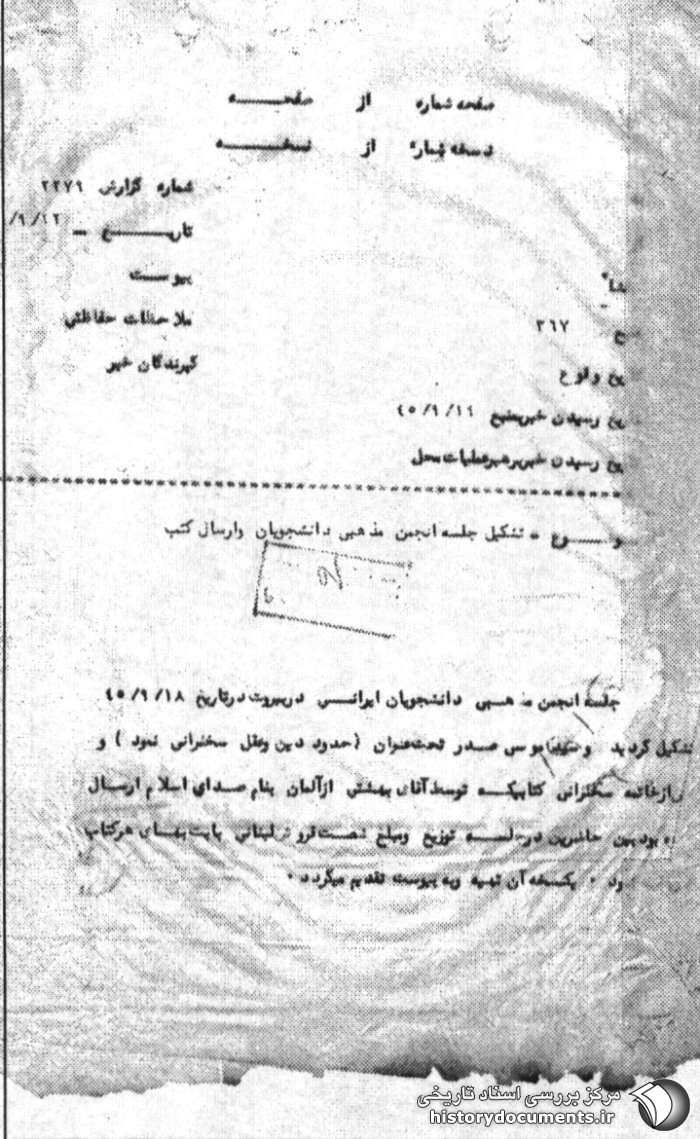 صفحه شماره از صفحـــــه
نسخه شماره از نسخـــــه
شماره گزارش ۲۲۷۹
تاریـــــخ ــ ۹/۱۲/
پیوســـت
ملاحظات حفاظتی
گیرندگان خبر
۳۶۷
وقوع
رسیدن خبربمنبع ۴۵/۹/۱۹
رسیدن خبربرهبرعملیات محل
تشکیل جلسه انجمن مذهبی دانشجویان وارسال کتب
جلسه انجمن مذهبی دانشجویان ایرانـــی دربیروت درتاریخ ۴۵/۹/۱۸
تشکیل گردید و موسی صـدر تحت عنوان (حدود دین وعقل سخنرانی نمود ) و
سخنرانی کتابیکـــه توسط آقای بهشتی ازآلمان بنام صـدای اسلام ارسـال
بودبین حاضرین درجلســـه توزیع ومبلغ شصت قروش لبنانی بابت بهـای هرکتاب
یکنسخه آن تهیه وبه پیوست تقدیم میگردد ۰
مرکز بررسی اسناد تاریخی
historydocuments.ir